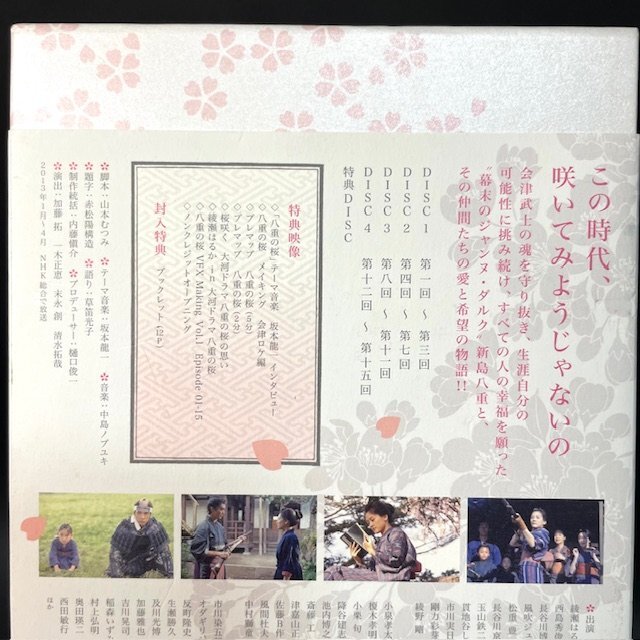 この時代、
咲いてみようじゃないの
会津武士の魂を守り抜き、生涯自分の
可能性に挑み続け、すべての人の幸福を願った
“幕末のジャンヌ・ダルク”新島八重と、
その仲間たちの愛と希望の物語!!
DISC 1 第一回 〜 第三回
DISC 2 第四回 〜 第七回
DISC 3 第八回 〜 第十一回
DISC 4 第十二回 〜 第十五回
特典DISC
特典映像
◇「八重の桜」テーマ音楽 坂本龍一 インタビュー
◇八重の桜 メイキング 会津ロケ編
◇プレマップ 八重の桜(5分)
◇プレマップ 八重の桜(2分)
◇桜咲く 大河ドラマ 八重の桜の思い
◇綾瀬はるか in 大河ドラマ 八重の桜
◇八重の桜 VFX Making Vol.1 Episode 01-15
◇ノンクレジットオープニング
封入特典 ブックレット(12P)
脚本：山本むつみ テーマ音楽：坂本龍一 音楽：中島ノブユキ
題字：赤松陽構造 語り：草笛光子
制作統括：内藤愼介 プロデューサー：樋口俊一
演出：加藤拓 一木正恵 末永創 清水拓哉
2013年1月〜4月 NHK総合で放送
出演
綾瀬は
西島秀
長谷川
風吹ジュ
松重 豊
長谷川京
玉山鉄
市川実
貫地谷し
剛力彩芽
綾野 剛
小泉孝太
榎木孝明
小栗 旬
降谷建志
池内博之
斎藤 工
津嘉山正
佐藤B作
風間杜夫
中村獅童
市川染五
オダギリ
反町隆史
生瀬勝久
及川光博
加藤雅也
吉川晃司
稲森いず
村上弘明
奥田瑛二
西田敏行
ほか